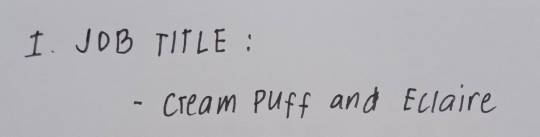 I. JOB TITLE :
- Cream Puff and Eclaire